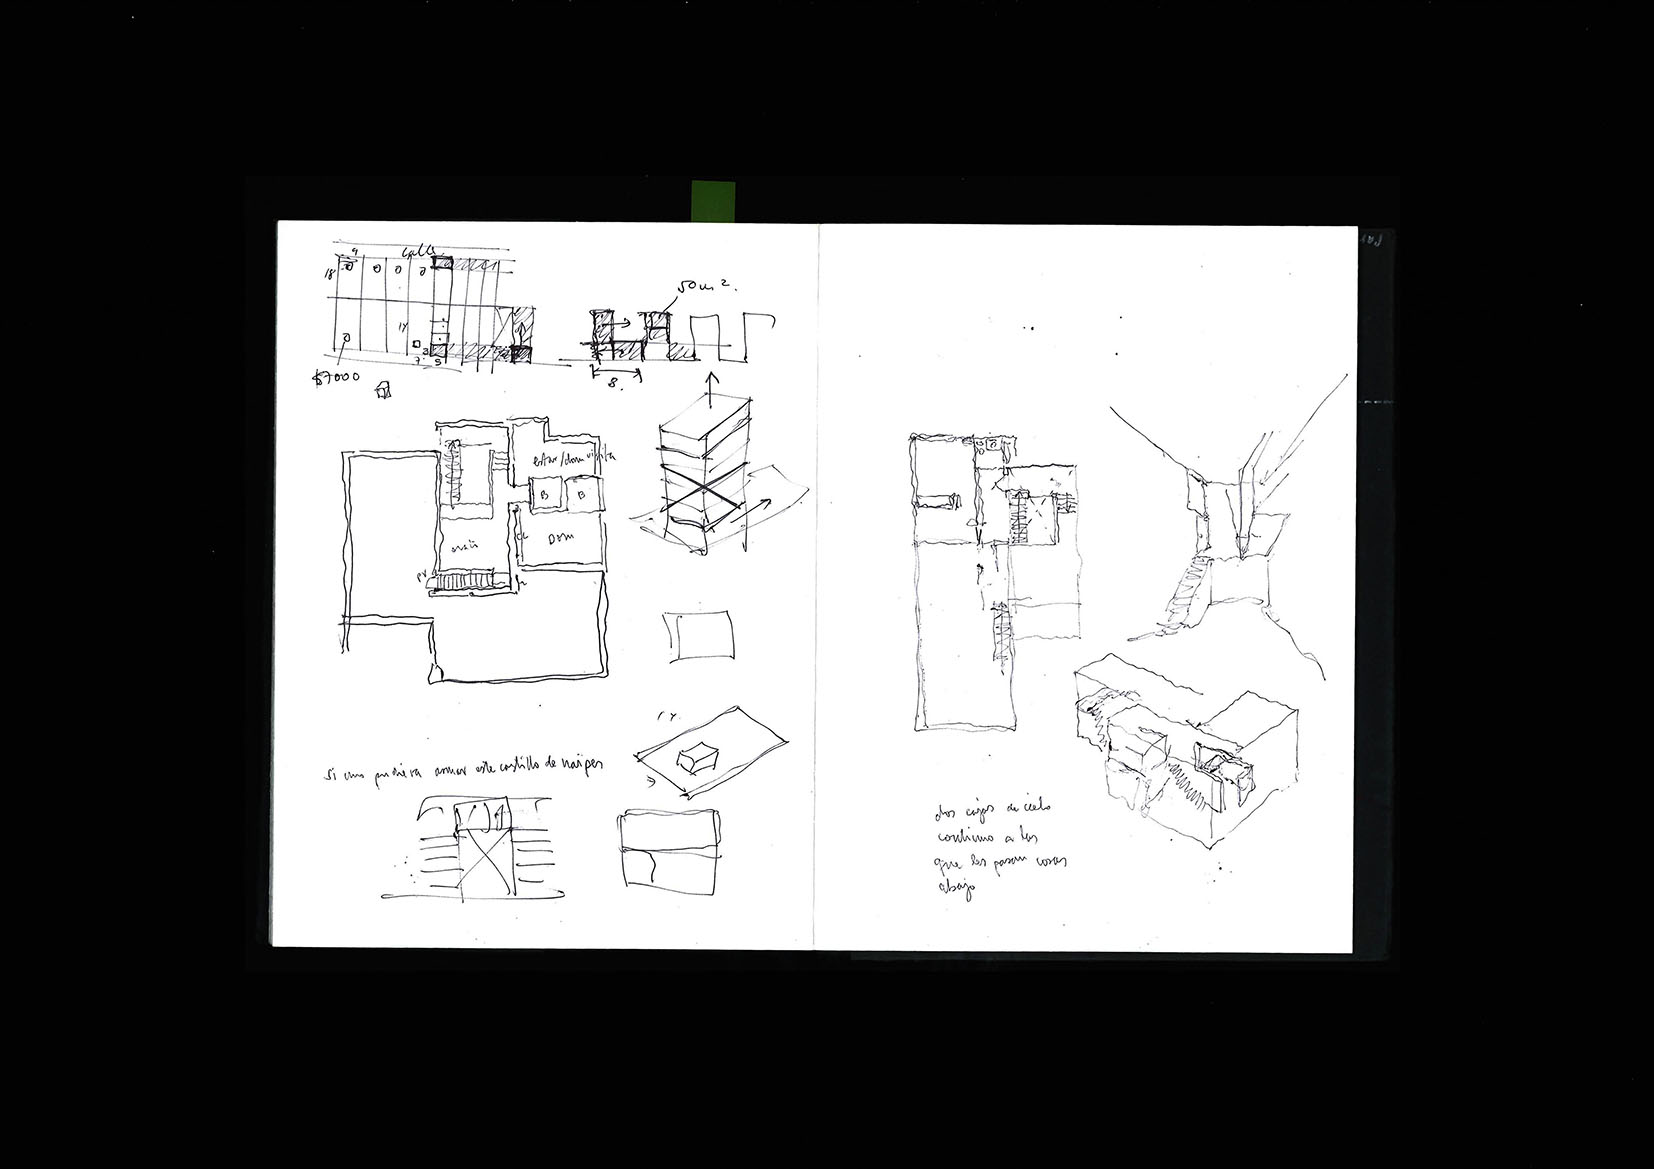 calle
9
18
50 m².
14
3
7.
5
$7000
8.
estar/dom visita
B
B
Dom
si uno pudiera armar este castillo de naipes
dos cajas de cielo
continuo a las
que les pasan cosas
abajo